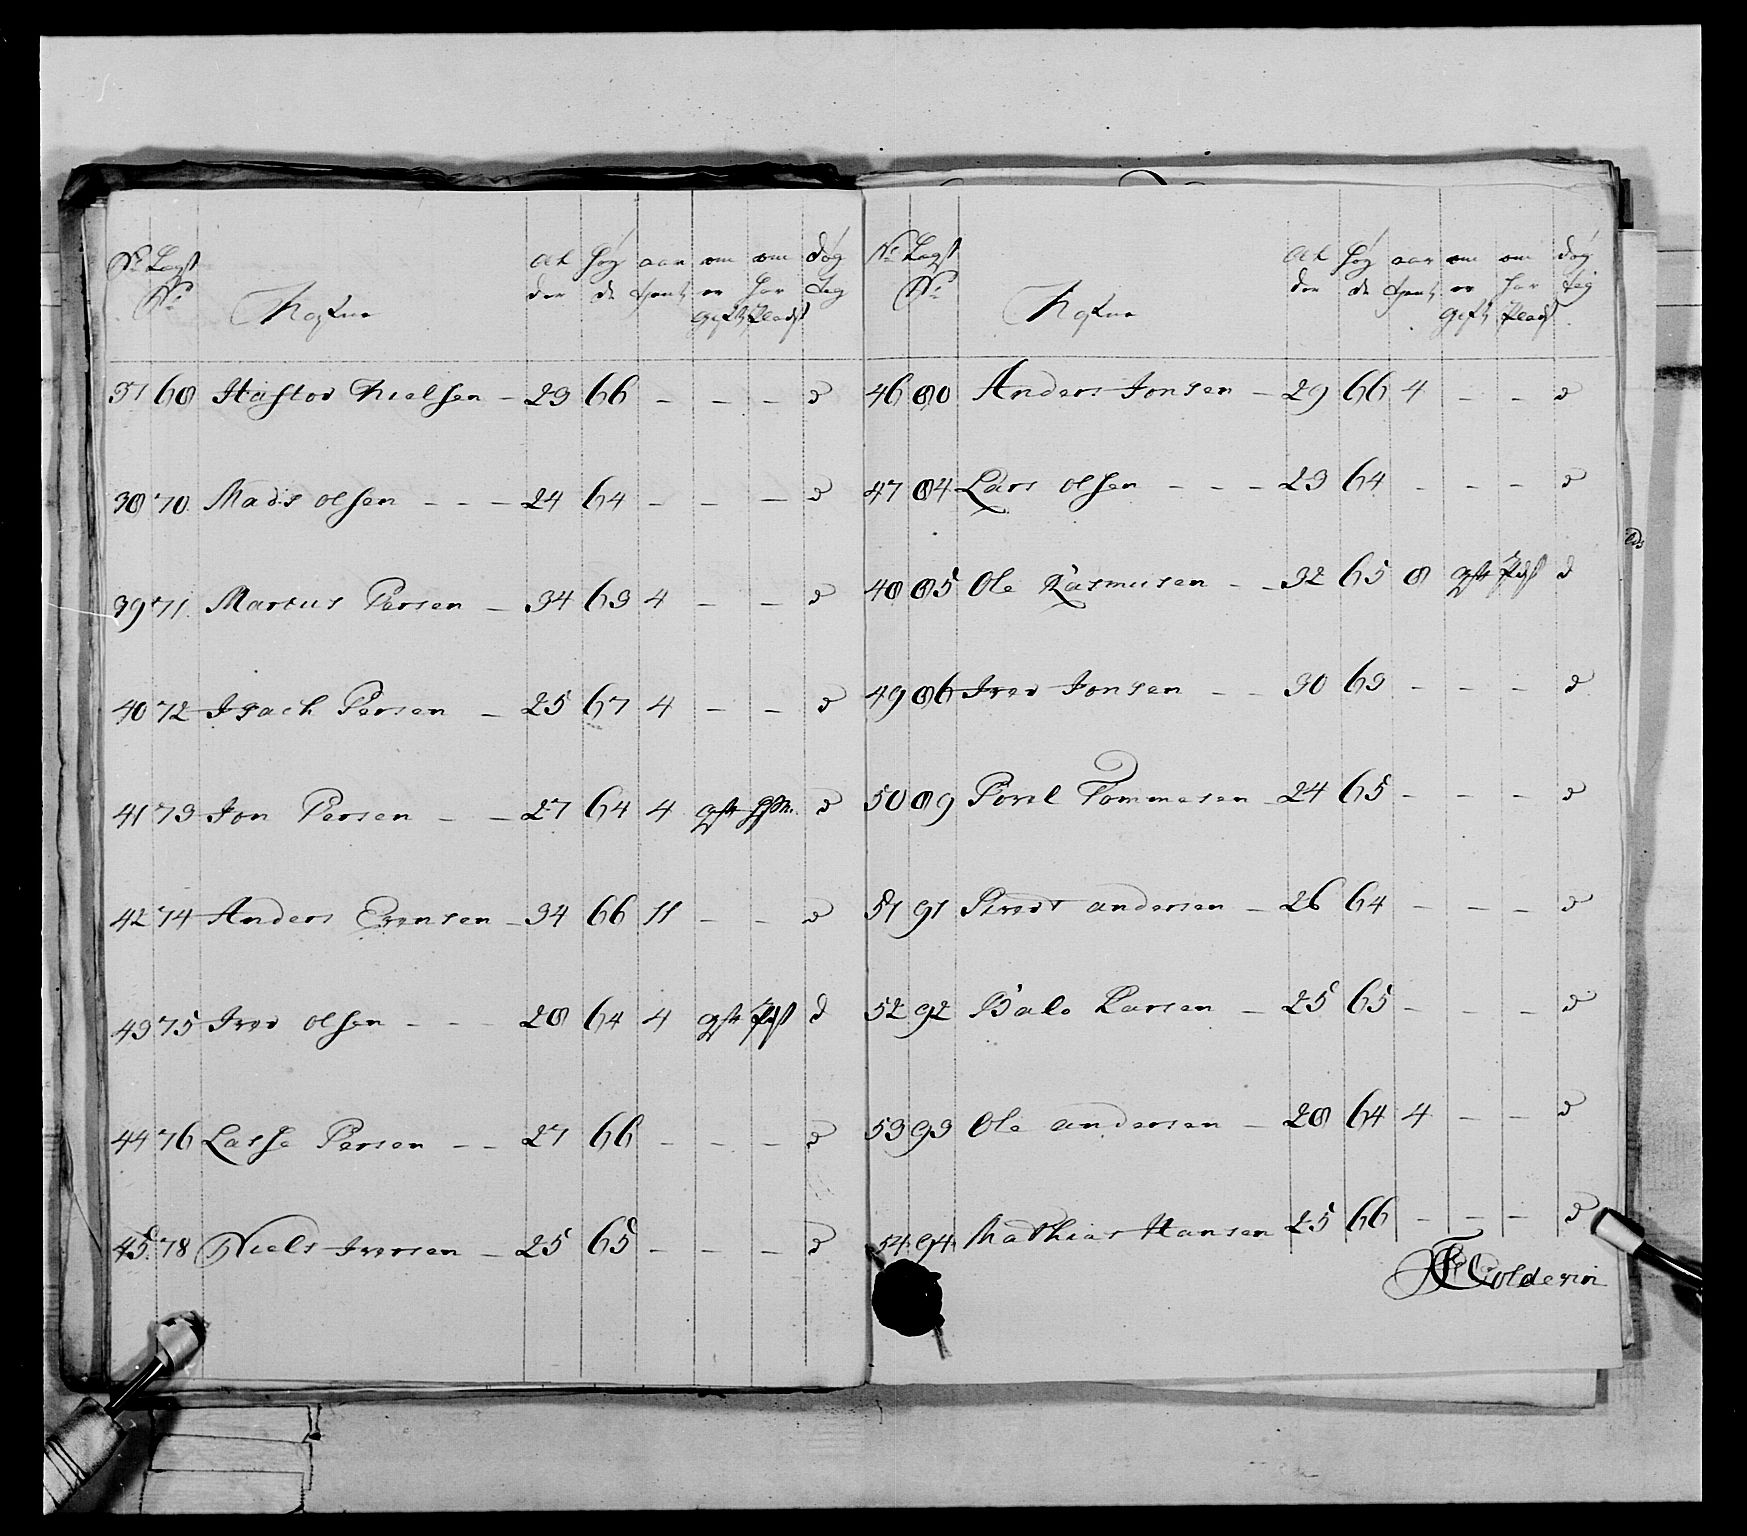 No Lægd No Nafne alder høyde aar tjent om er gift om har Plads døgtig
37 68 Hastor Nielsen - 29 66 - - - d
38 70 Mads olsen - - - 24 64 - - - d
39 71 Marcus Persen - 34 63 4 - - d
40 72 Isach Persen - 25 67 4 - - d
41 73 Jon Persen - - 27 64 4 gft d
42 74 Anders Evensen - 34 66 11 - - d
43 75 Iver olsen - - - 28 64 4 gft Pds d
44 76 Lasse Persen - - 27 66 - - - d
45 78 Niels Iversen - 25 65 - - - d
No Lægd No Nafne alder høyde aar tjent om er gift om har Plads døgtig
46 80 Anders Jonsen - 29 66 4 - - d
47 84 Lars olsen - - - 23 64 - - - d
48 85 Ole Rasmusen - - 32 65 8 gft Pds d
49 86 Iver Jonsen - - 30 63 - - - d
50 89 Povel Tommesen - 24 65 - - - d
51 91 Sivert andersen - 26 64 - - - d
52 92 Larsen - 25 65 - - - d
53 93 Ole andersen - 28 64 4 - - d
54 94 Mathias Hansen 25 66 - - - d
Coldevin